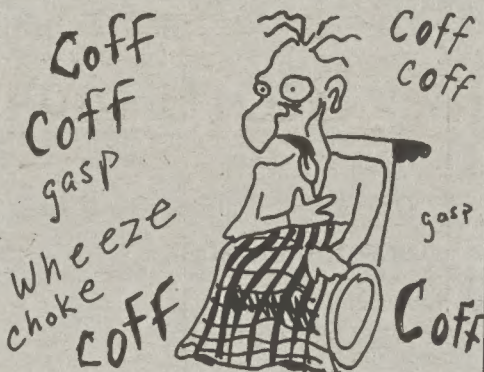 Coff
Coff
gasp
Wheeze
choke
Coff
Coff
Coff
gasp
Coff